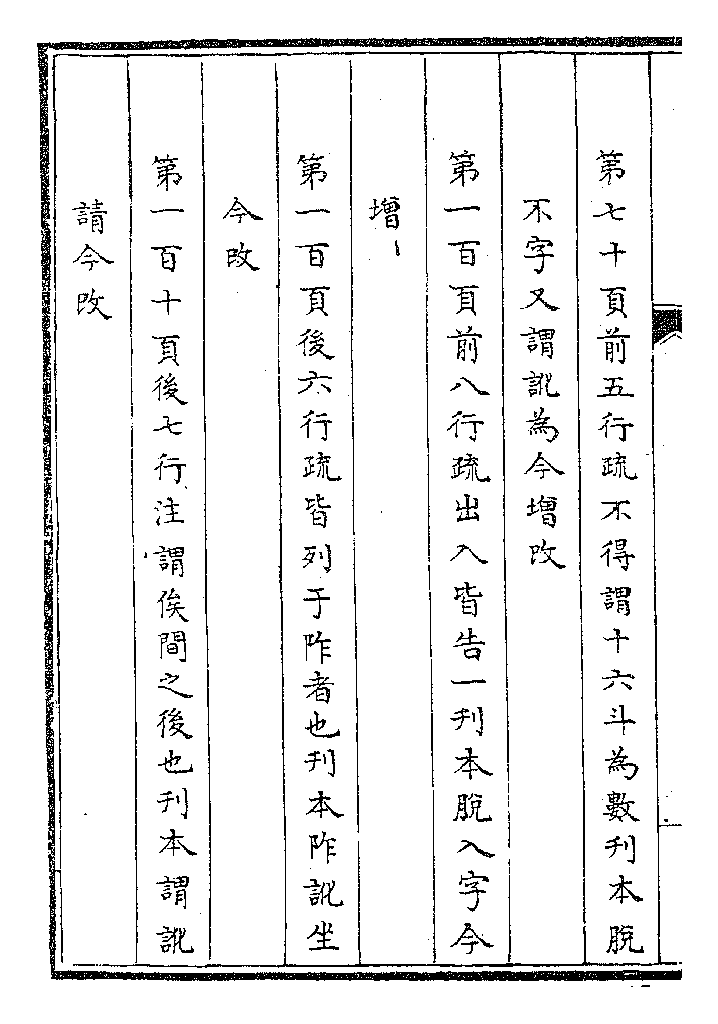 第七十頁前五行疏不得謂十六斗為數刋本脫
不字又謂訛為今增改
第一百頁前八行疏出入皆告一刋本脫入字今
增
第一百頁後六行疏皆列于阼者也刋本阼訛坐
今改
第一百十頁後七行注謂俟間之後也刋本謂訛
請今改